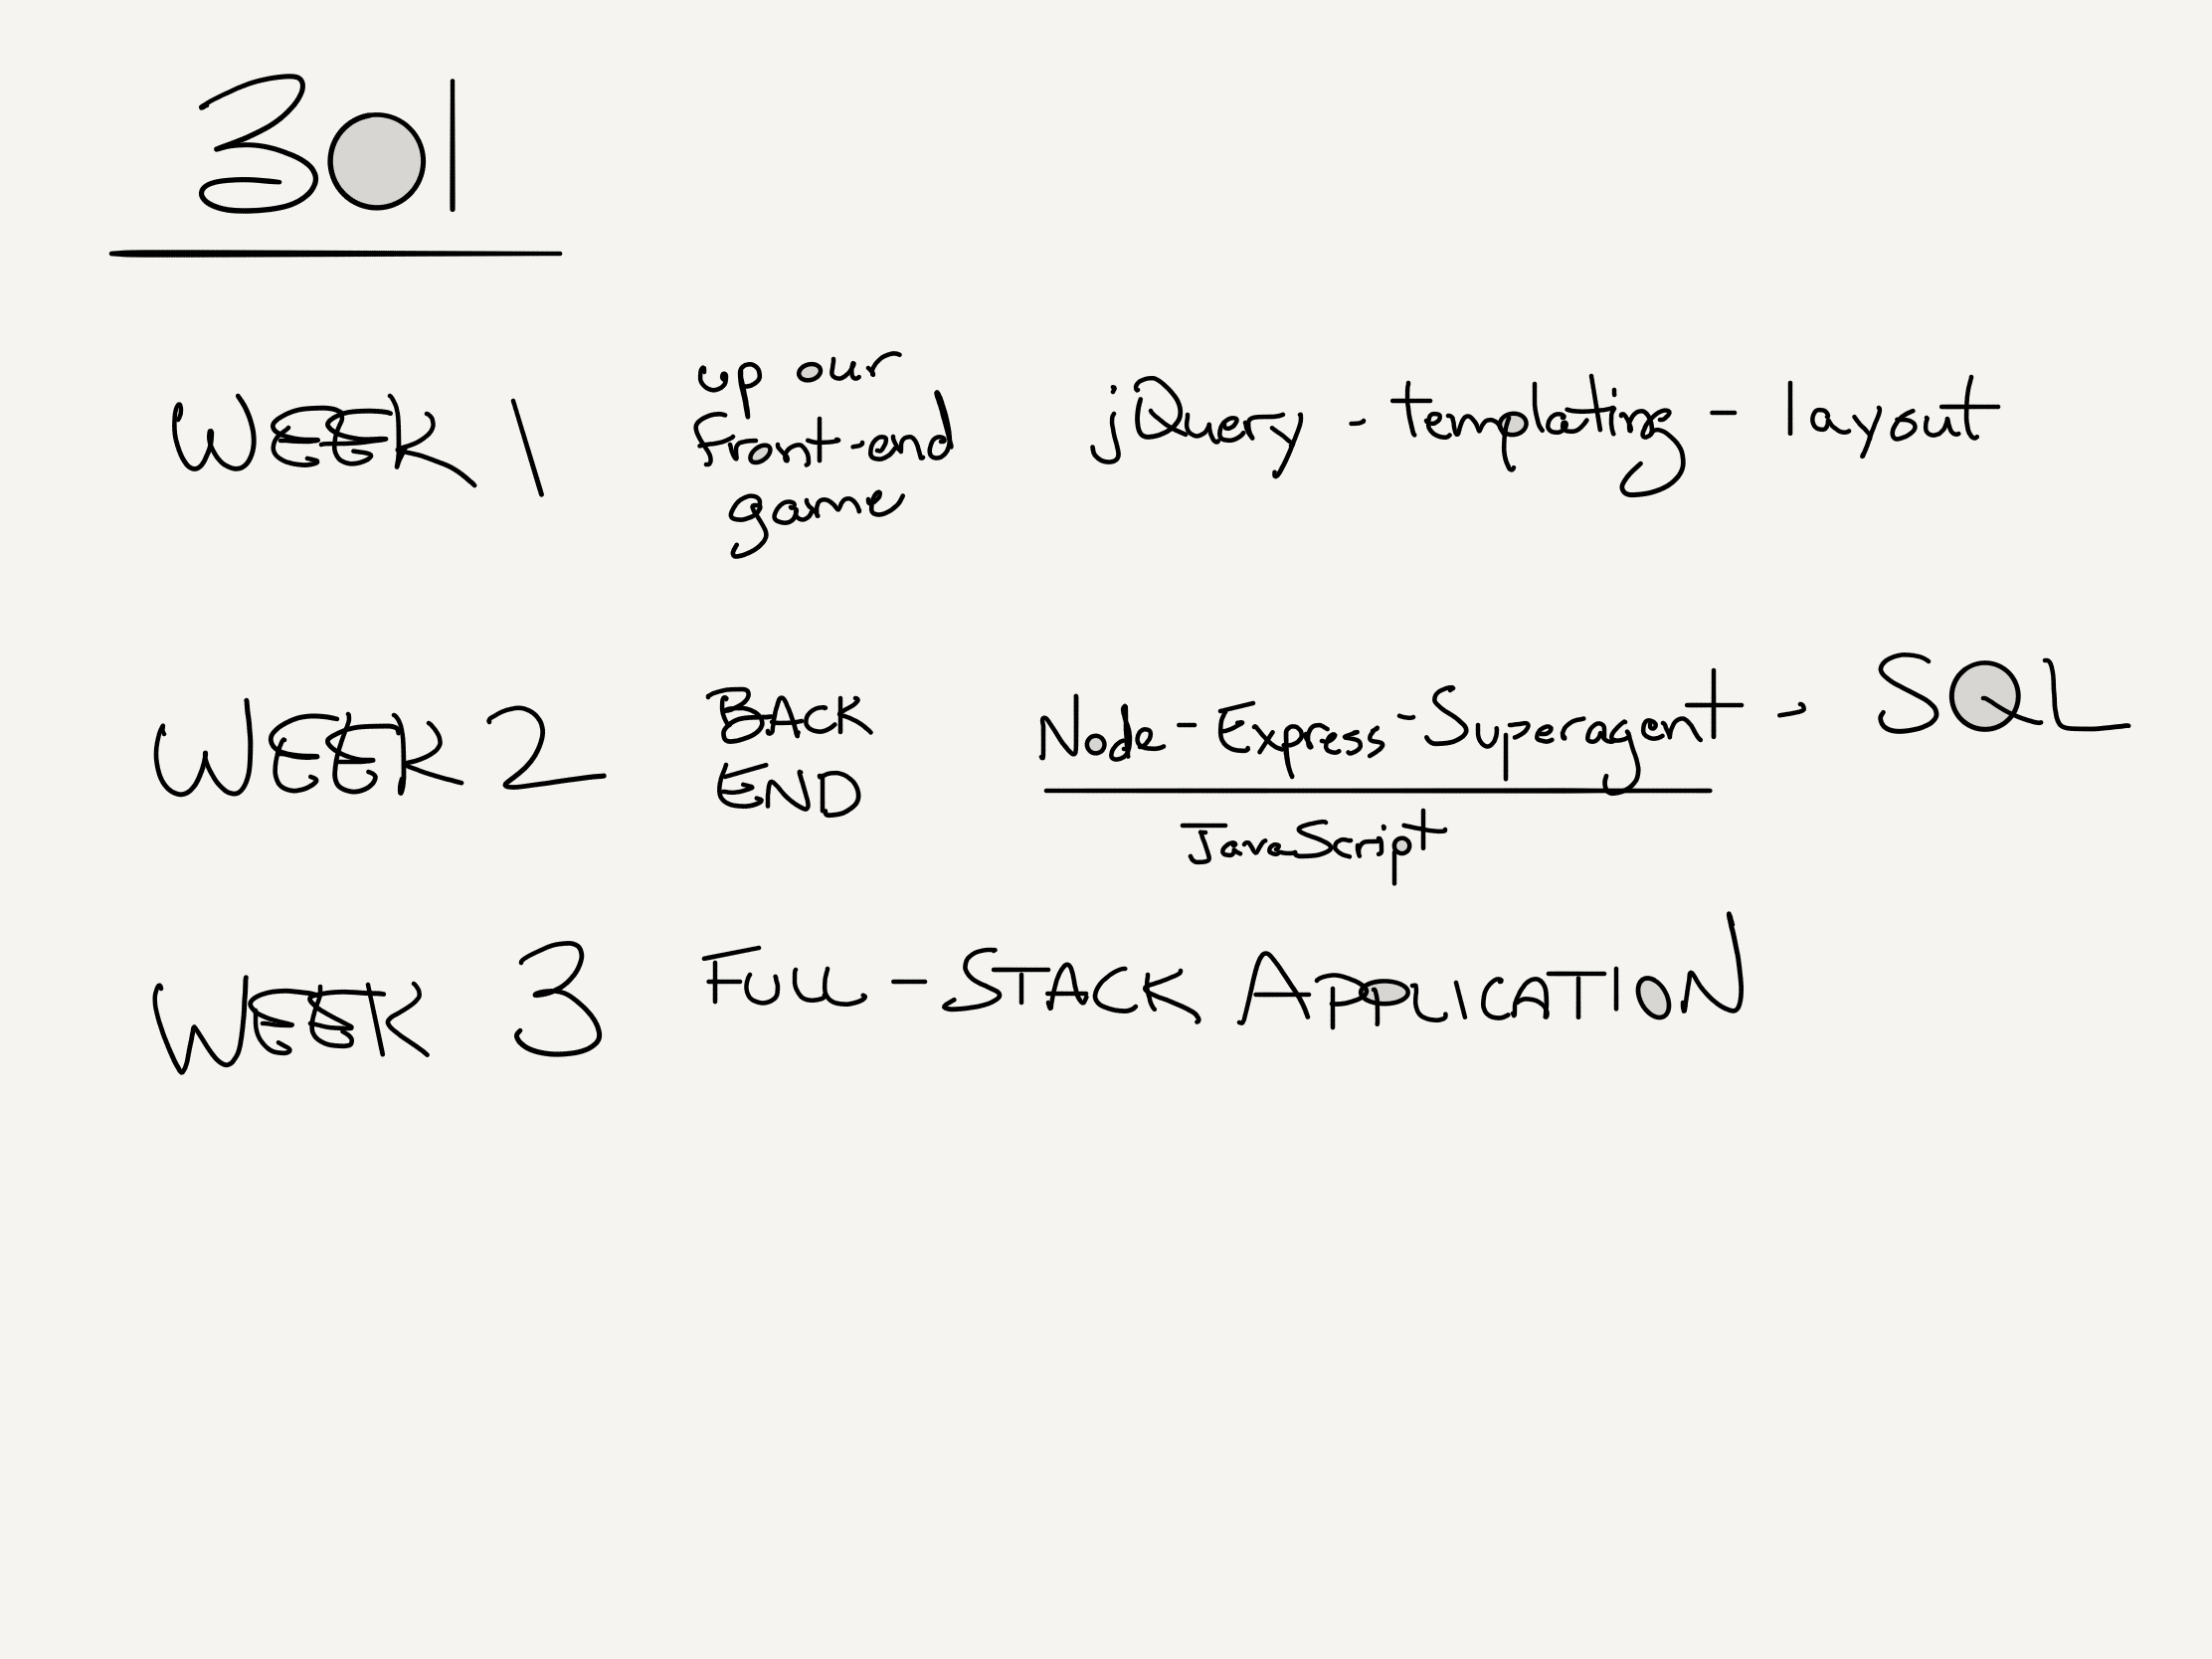 301
WEEK 1
up our
front-end
game
jQuery - templating - layout
WEEK 2
BACK
END
Node - Express - Superagent - SQL
JavaScript
WEEK 3
FULL - STACK APPLICATION